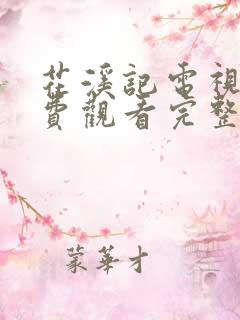 茳溪記電視
費觀看完整
蒙華才